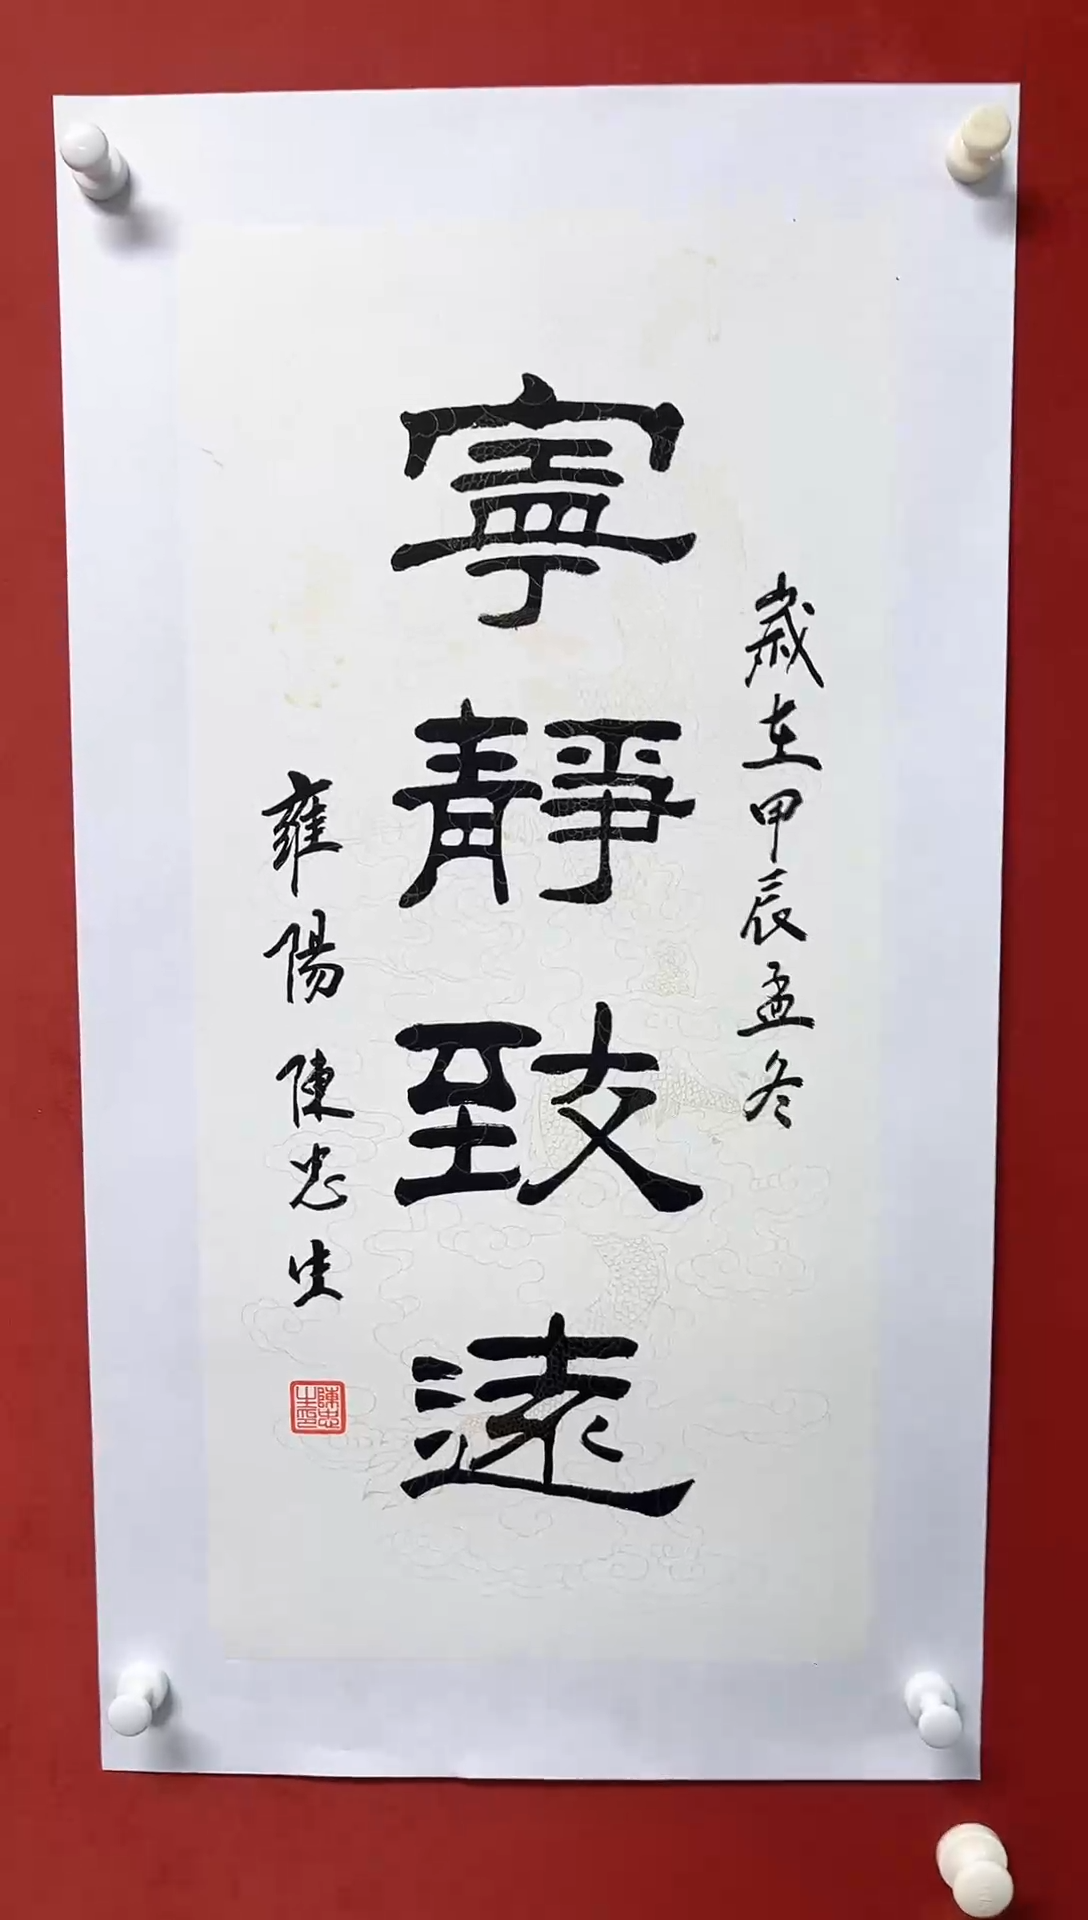 歲在甲辰孟冬
寧靜致遠
雍陽 陳忠生
陳忠生印